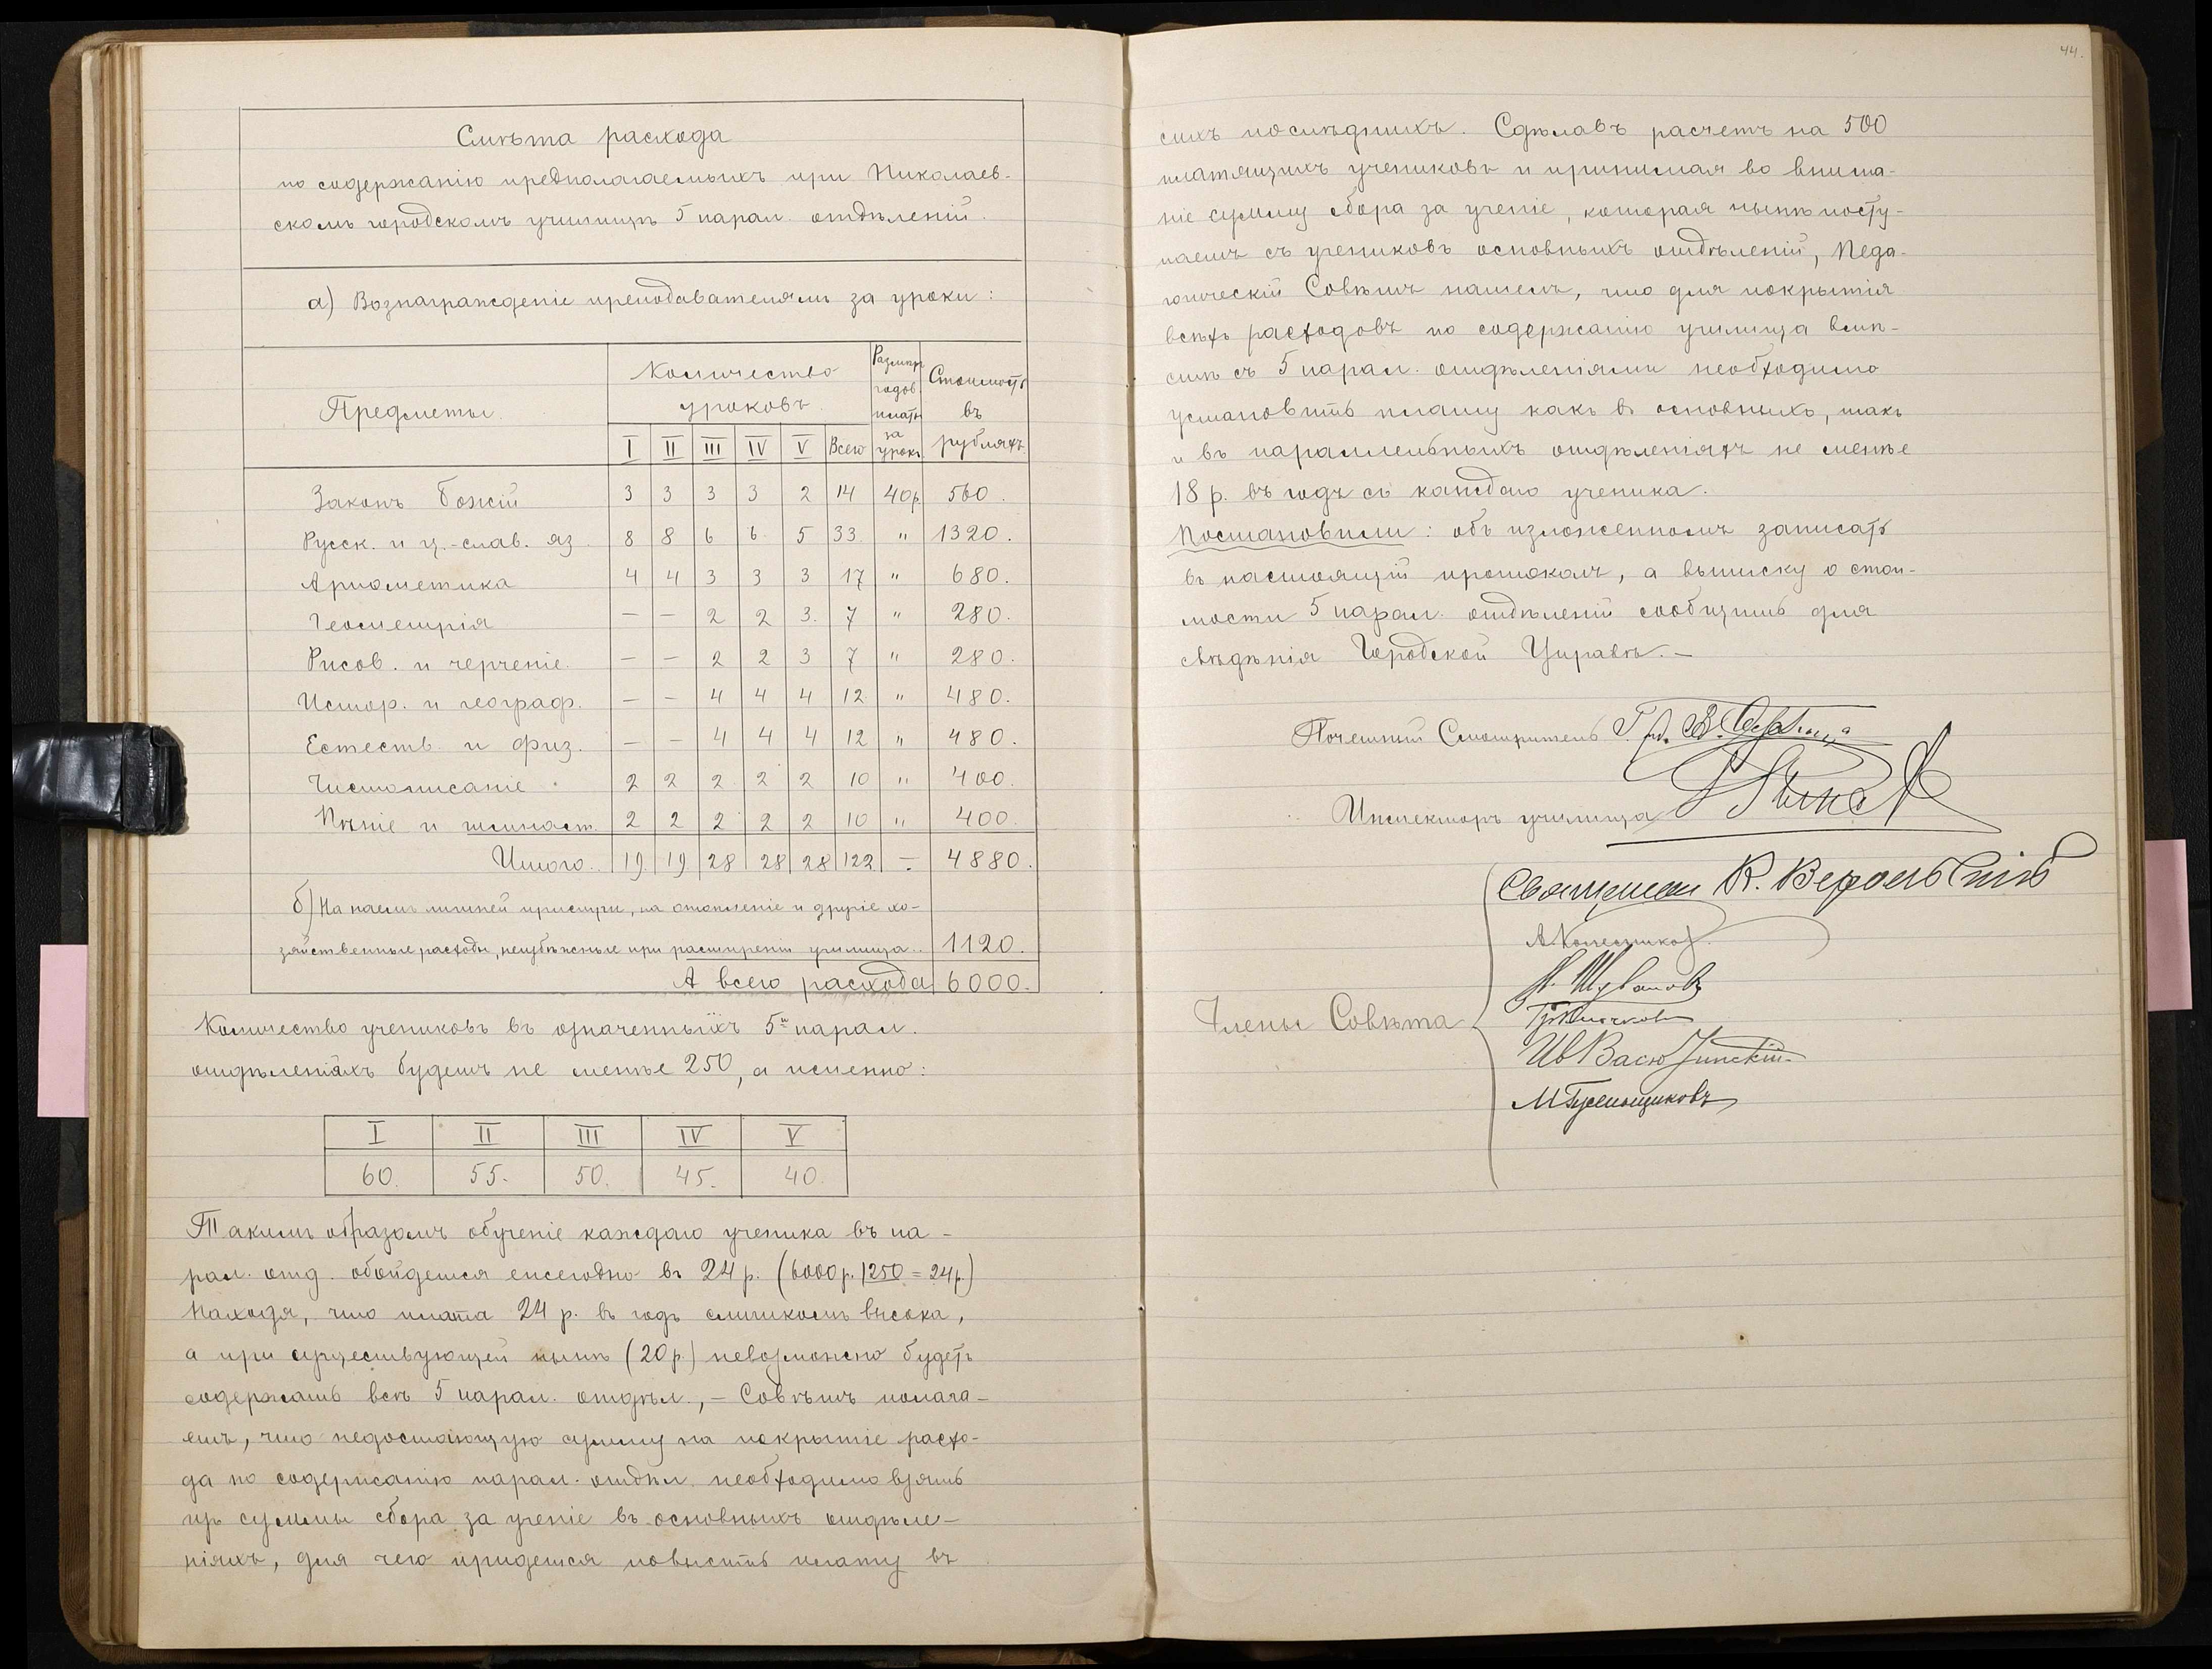 Смѣта расхода
по содержанію предполагаемыхъ при Николаев-
скомъ городскомъ училищѣ 5 парал. отдѣленій.
а) Вознагражденіе преподавателямъ за уроки:
Предметы. Количество уроковъ. Размѣръ годов. платы за урокъ Стоимость въ рубляхъ.
I II III IV V Всего
Законъ Божій 3 3 3 3 2 14 40р. 560.
Русск. и ц.-слав. яз. 8 8 6 6 5 33 " 1320.
Ариѳметика 4 4 3 3 3 17 " 680.
Геометрія — — 2 2 3. 7 " 280.
Рисов. и черченіе. — — 2 2 3 7 " 280.
Истор. и географ. — — 4 4 4 12 " 480.
Естеств. и физ. — — 4 4 4 12 " 480.
Чистописаніе 2 2 2 2 2 10 " 400.
Пѣніе и гимнаст. 2 2 2 2 2 10 " 400.
Итого.. 19 19 28 28 28 122 — 4880.
б) На наемъ лишней прислуги, на отопленіе и другіе хо-
зяйственные расходы, неизбѣжные при расширеніи училища.. 1120.
А всего расхода 6000.
Количество учениковъ въ означенныхъ 5и парал.
отдѣленіяхъ будетъ не менѣе 250, а именно:
I II III IV V
60. 55. 50. 45. 40.
Такимъ образомъ обученіе каждаго ученика въ па-
рал. отд. обойдется ежегодно въ 24 р. (6000р.|250 = 24р.)
Находя, что плата 24 р. въ годъ слишкомъ высока,
а при существующей нынѣ (20 р.) невозможно будетъ
содержать всѣ 5 парал. отдѣл., — Совѣтъ полага-
етъ, что недостающую сумму на покрытіе расхо-
да по содержанію парал. отдѣл. необходимо взять
изъ суммы сбора за ученіе въ основныхъ отдѣле-
ніяхъ, для чего придется повысить плату въ
44.
сихъ послѣднихъ. Сдѣлавъ расчетъ на 500
платящихъ учениковъ и принимая во внима-
ніе сумму сбора за ученіе, которая нынѣ посту-
паетъ съ учениковъ основныхъ отдѣленій, Педа-
гогическій Совѣтъ нашелъ, что для покрытія
всѣхъ расходовъ по содержанію училища вмѣ-
стѣ съ 5 парал. отдѣленіями необходимо
установить плату какъ въ основныхъ, такъ
и въ параллельныхъ отдѣленіяхъ не менѣе
18 р. въ годъ съ каждаго ученика.
Постановили: объ изложенномъ записать
въ настоящій протоколъ, а выписку о стои-
мости 5 парал. отдѣленій сообщить для
свѣдѣнія Городской Управѣ. —
Почетный Смотритель
Инспекторъ училища
Священникъ К.
А. Колесников
Члены Совѣта
М